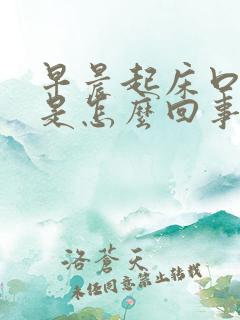 早晨起床口
是怎麼回事
洛蒼天
未经同意禁止转载